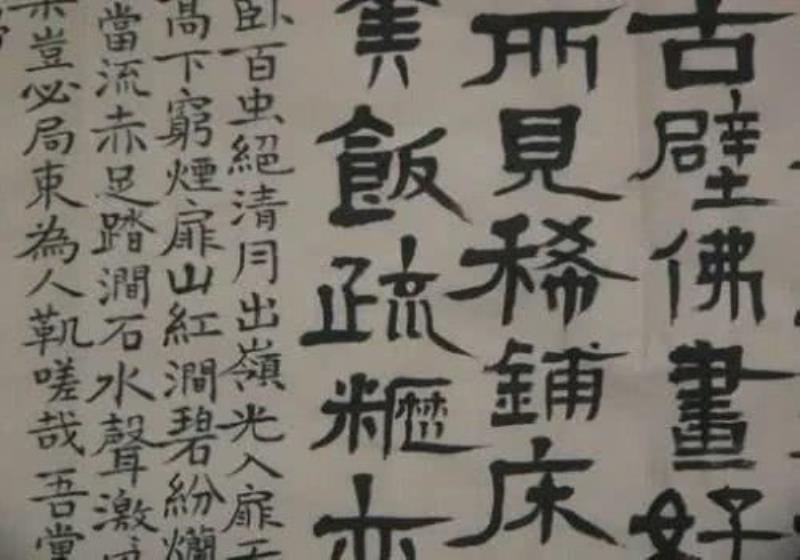 古壁佛畫好
所見稀鋪床
羹飯疏糲亦
臥百虫絕清月出嶺光入扉天
高下窮煙扉山紅澗碧紛爛
當流赤足踏澗石水聲激
豈必局東為人靰嗟哉吾黨